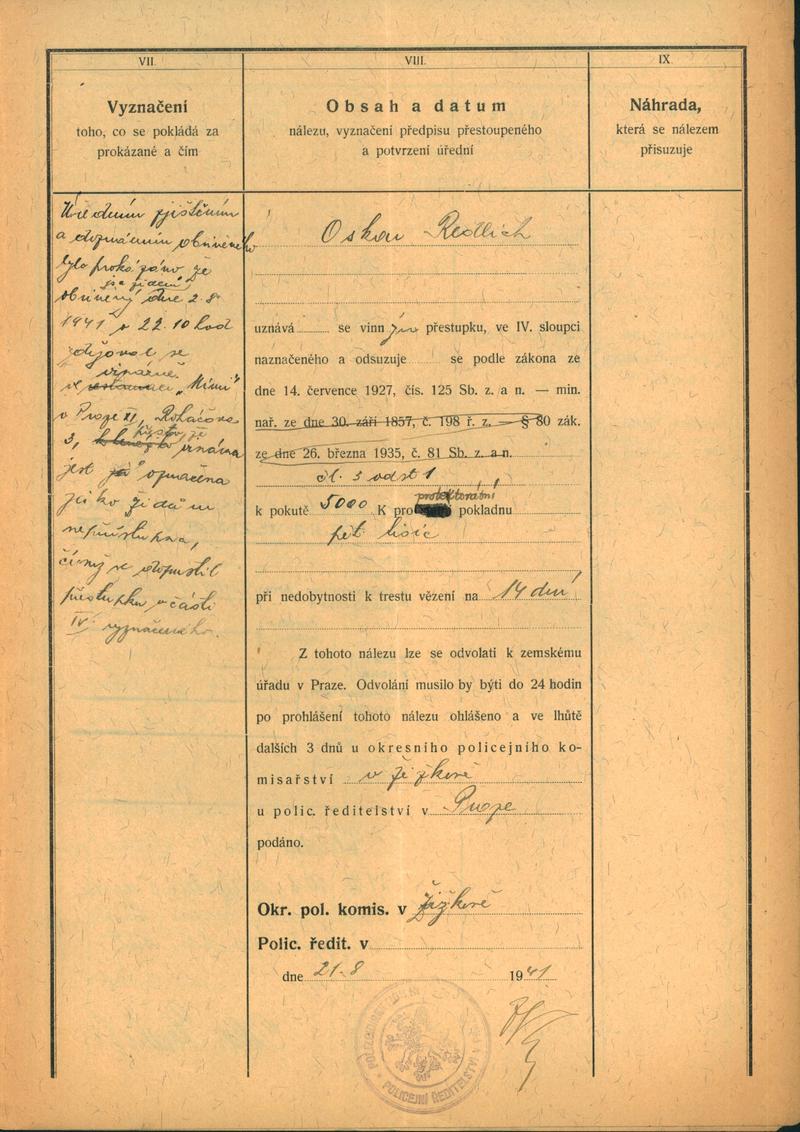 VII.
Vyznačení
toho, co se pokládá za
prokázané a čím
Úředním zjištěním
a doznáním obviněného
bylo prokázáno že
jsa židem
obviněný dne 2.8.
1941 o 22.10 hod
zdržoval se
vinárně
v restauraci „Mimi“
v Praze XI, Roháčova
3,
vinárna
jest označena
jako židům
nepřístupna,
čímž se dopustil
přestupku v části
IV. vyznačeného.
VIII.
Obsah a datum
nálezu, vyznačení předpisu přestoupeného
a potvrzení úřední
Oskar Redlich
uznává se vinným přestupku, ve IV. sloupci
naznačeného a odsuzuje se podle zákona ze
dne 14. července 1927, čís. 125 Sb. z. a n. — min.
nař. ze dne 30. září 1857, č. 198 ř. z. — § 80 zák.
ze dne 26. března 1935, č. 81 Sb. z. a n.
čl. 3 odst 1
protektorátní
k pokutě 5000 K pro pokladnu
pět tisíc
při nedobytnosti k trestu vězení na 14 dní
Z tohoto nálezu lze se odvolati k zemskému
úřadu v Praze. Odvolání musilo by býti do 24 hodin
po prohlášení tohoto nálezu ohlášeno a ve lhůtě
dalších 3 dnů u okresního policejního ko-
misařství v Žižkově
u polic. ředitelství v Praze
podáno.
Okr. pol. komis. v Žižkově
Polic. ředit. v
dne 21.8 1941
POLICEJNÍ ŘEDITELSTVÍ
IX.
Náhrada,
která se nálezem
přisuzuje